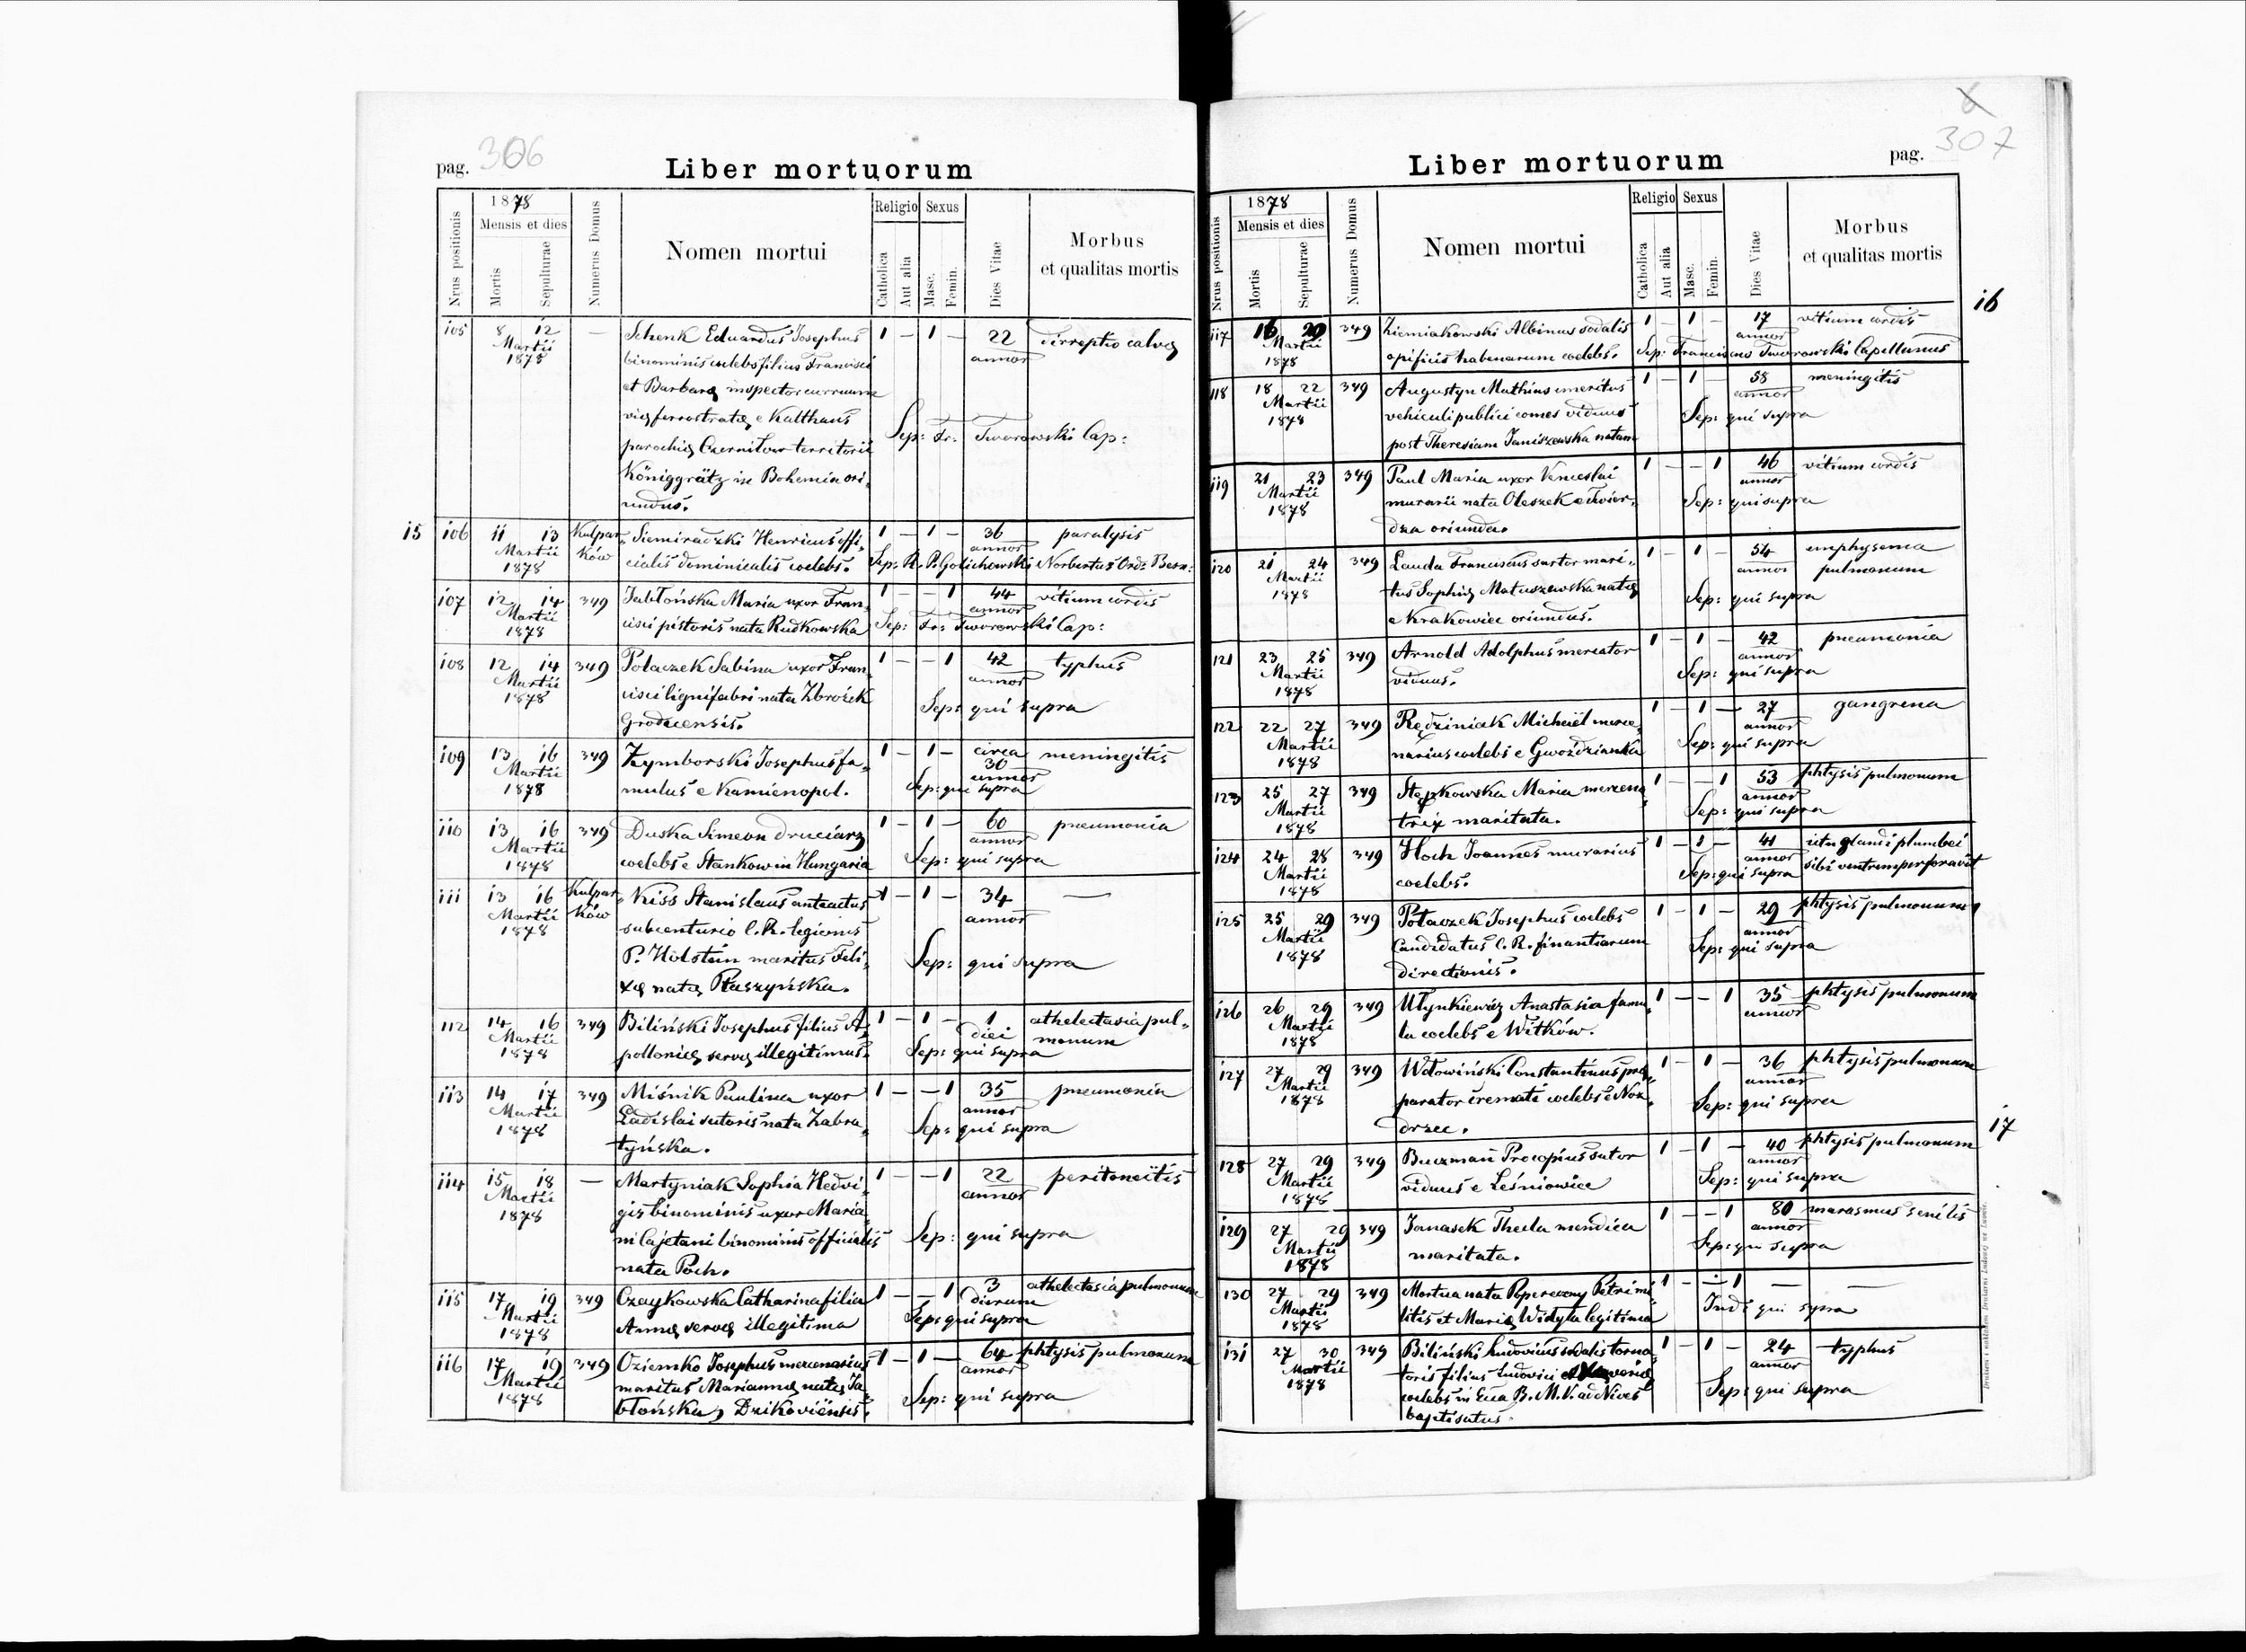 pag. 306
Liber mortuorum
Nrus positionis
1878
Mensis et dies
Mortis
Sepulturae
Numerus Domus
Nomen mortui
Religio
Catholica
Aut alia
Sexus
Masc.
Femin.
Dies Vitae
Morbus
et qualitas mortis
105 8 12 — Schenk Eduardus Josephus 1 — 1 — 22 dirreptio calvae
Martii binominis coelebs filius Francisci annor
1878 et Barbarae inspector curruum
viae ferrostratae e Kalthaus
Sep: Fr. Tworowski Cap:
parochiae Czernilow territorii
Königgrätz in Bohemia ori„
undus.
15 106 11 13 Kulpar„ Siemiradzki Henricus offi„ 1 — 1 — 36 paralysis
Martii ków cialis dominicalis coelebs. annor
1878 Sep: R. P. Golichowski Norbertus Ord: Bern:
107 12 14 349 Jabłońska Maria uxor Fran„ 1 — — 1 44 vitium cordis
Martii cisci pistoris nata Rudkowska annor
1878 Sep: Fr: Tworowski Cap:
108 12 14 349 Polaczek Sabina uxor Fran„ 1 — — 1 42 typhus
Martii cisci lignifabri nata Zbrożek annor
1878 Grodecensis. Sep: qui supra
109 13 16 349 Zymborski Josephus fa„ 1 — 1 — circa 30 meningitis
Martii mulus e Kamienopol. annor
1878 Sep: qui supra
110 13 16 349 Duska Simeon druciarz 1 — 1 — 60 pneumonia
Martii coelebs e Stankow in Hungaria annor
1878 Sep: qui supra
111 13 16 Kulpar„ Kiss Stanislaus anteactus 1 — 1 — 34 —
Martii ków subcenturio C. R. legionis annor
1878 P. Holstein maritus Feli„
xae natae Ptaszyńska. Sep: qui supra
112 14 16 349 Biliński Josephus filius A„ 1 — 1 — 1 athelectasia pul„
Martii polloniae servae illegitimus. diei monum
1878 Sep: qui supra
113 14 17 349 Miśnik Paulina uxor 1 — — 1 35 pneumonia
Martii Ladislai sutoris nata Zabra„ annor
1878 tyńska. Sep: qui supra
114 15 18 — Martyniak Sophia Hedvi„ 1 — — 1 22 peritoneitis
Martii gis binominis uxor Maria„ annor
1878 ni Cajetani binominis officialis Sep: qui supra
nata Poch.
115 17 19 349 Czaykowska Catharina filia 1 — — 1 3 athelectasia pulmonum
Martii Annae servae illegitima dierum
1878 Sep: qui supra
116 17 19 349 Oziemko Josephus mercenarius 1 — 1 — 64 phtysis pulmonum
Martii maritus Mariannae natae Ja„ annor
1878 błońska, Dzikoviensis. Sep: qui supra
x
307
pag.
Liber mortuorum
Nrus positionis
1878
Mensis et dies
Mortis
Sepulturae
Numerus Domus
Nomen mortui
Religio
Catholica
Aut alia
Sexus
Masc.
Femin.
Dies Vitae
Morbus
et qualitas mortis
16
117 16 20 349 Ziemiakowski Albinus sodalis 1 — 1 — 17 vitium cordis
Martii opificis habenarum coelebs. annor
1878 Sep: Franciscus Tworowski Capellanus
118 18 22 349 Augustyn Mathias emeritus 1 — 1 — 58 meningitis
Martii vehiculi publici comes viduus annor
1878 post Theresiam Janiszewska natam Sep: qui supra
119 21 23 349 Paul Maria uxor Venceslai 1 — — 1 46 vitium cordis
Martii murarii nata Oleszek e Twier„ annor
1878 dza oriunda. Sep: qui supra
120 21 24 349 Lauda Franciscus sartor mari„ 1 — 1 — 54 emphysema
Martii tus Sophiae Matuszewska natae annor pulmonum
1878 e Krakowiec oriundus. Sep: qui supra
121 23 25 349 Arnold Adolphus mercator 1 — 1 — 42 pneumonia
Martii viduus. annor
1878 Sep: qui supra
122 22 27 349 Rędziniak Michaël merce„ 1 — 1 — 27 gangrena
Martii narius coelebs e Gwoździanka annor
1878 Sep: qui supra
123 25 27 349 Stępkowska Maria mercena„ 1 — — 1 53 phtysis pulmonum
Martii trix maritata. annor
1878 Sep: qui supra
124 24 28 349 Hoch Joannes murarius 1 — 1 — 41 ictu glandis plumbei
Martii coelebs. annor sibi ventrem perforavit
1878 Sep: qui supra
125 25 29 349 Polaczek Josephus coelebs 1 — 1 — 29 phtysis pulmonum
Martii Candidatus C. R. finantiarum annor
1878 directionis. Sep: qui supra
126 26 29 349 Młynkiewicz Anastasia famu„ 1 — — 1 35 phtysis pulmonum
Martii la coelebs e Witków. annor
1878
127 27 29 349 Wdowiński Constantinus prae„ 1 — 1 — 36 phtysis pulmonum
Martii parator cremati coelebs e Noz„ annor
1878 drzec. Sep: qui supra
17
128 27 29 349 Buczman Procopius sutor 1 — 1 — 40 phtysis pulmonum
Martii viduus e Leśniowice annor
1878 Sep: qui supra
129 27 29 349 Janasek Thecla mendica 1 — — 1 80 marasmus senilis
Martii maritata. annor
1878 Sep: qui supra
130 27 29 349 Mortua nata Popereczny Petri mi„ 1 — — 1 — —
Martii litis et Mariae Widyła legitima
1878 Ind: qui supra
131 27 30 349 Biliński Ludovicus sodalis torna„ 1 — 1 — 24 typhus
Martii toris filius Ludovici et annor
1878 coelebs in Ecca B. M. V. ad Nives Sep: qui supra
baptisatus.